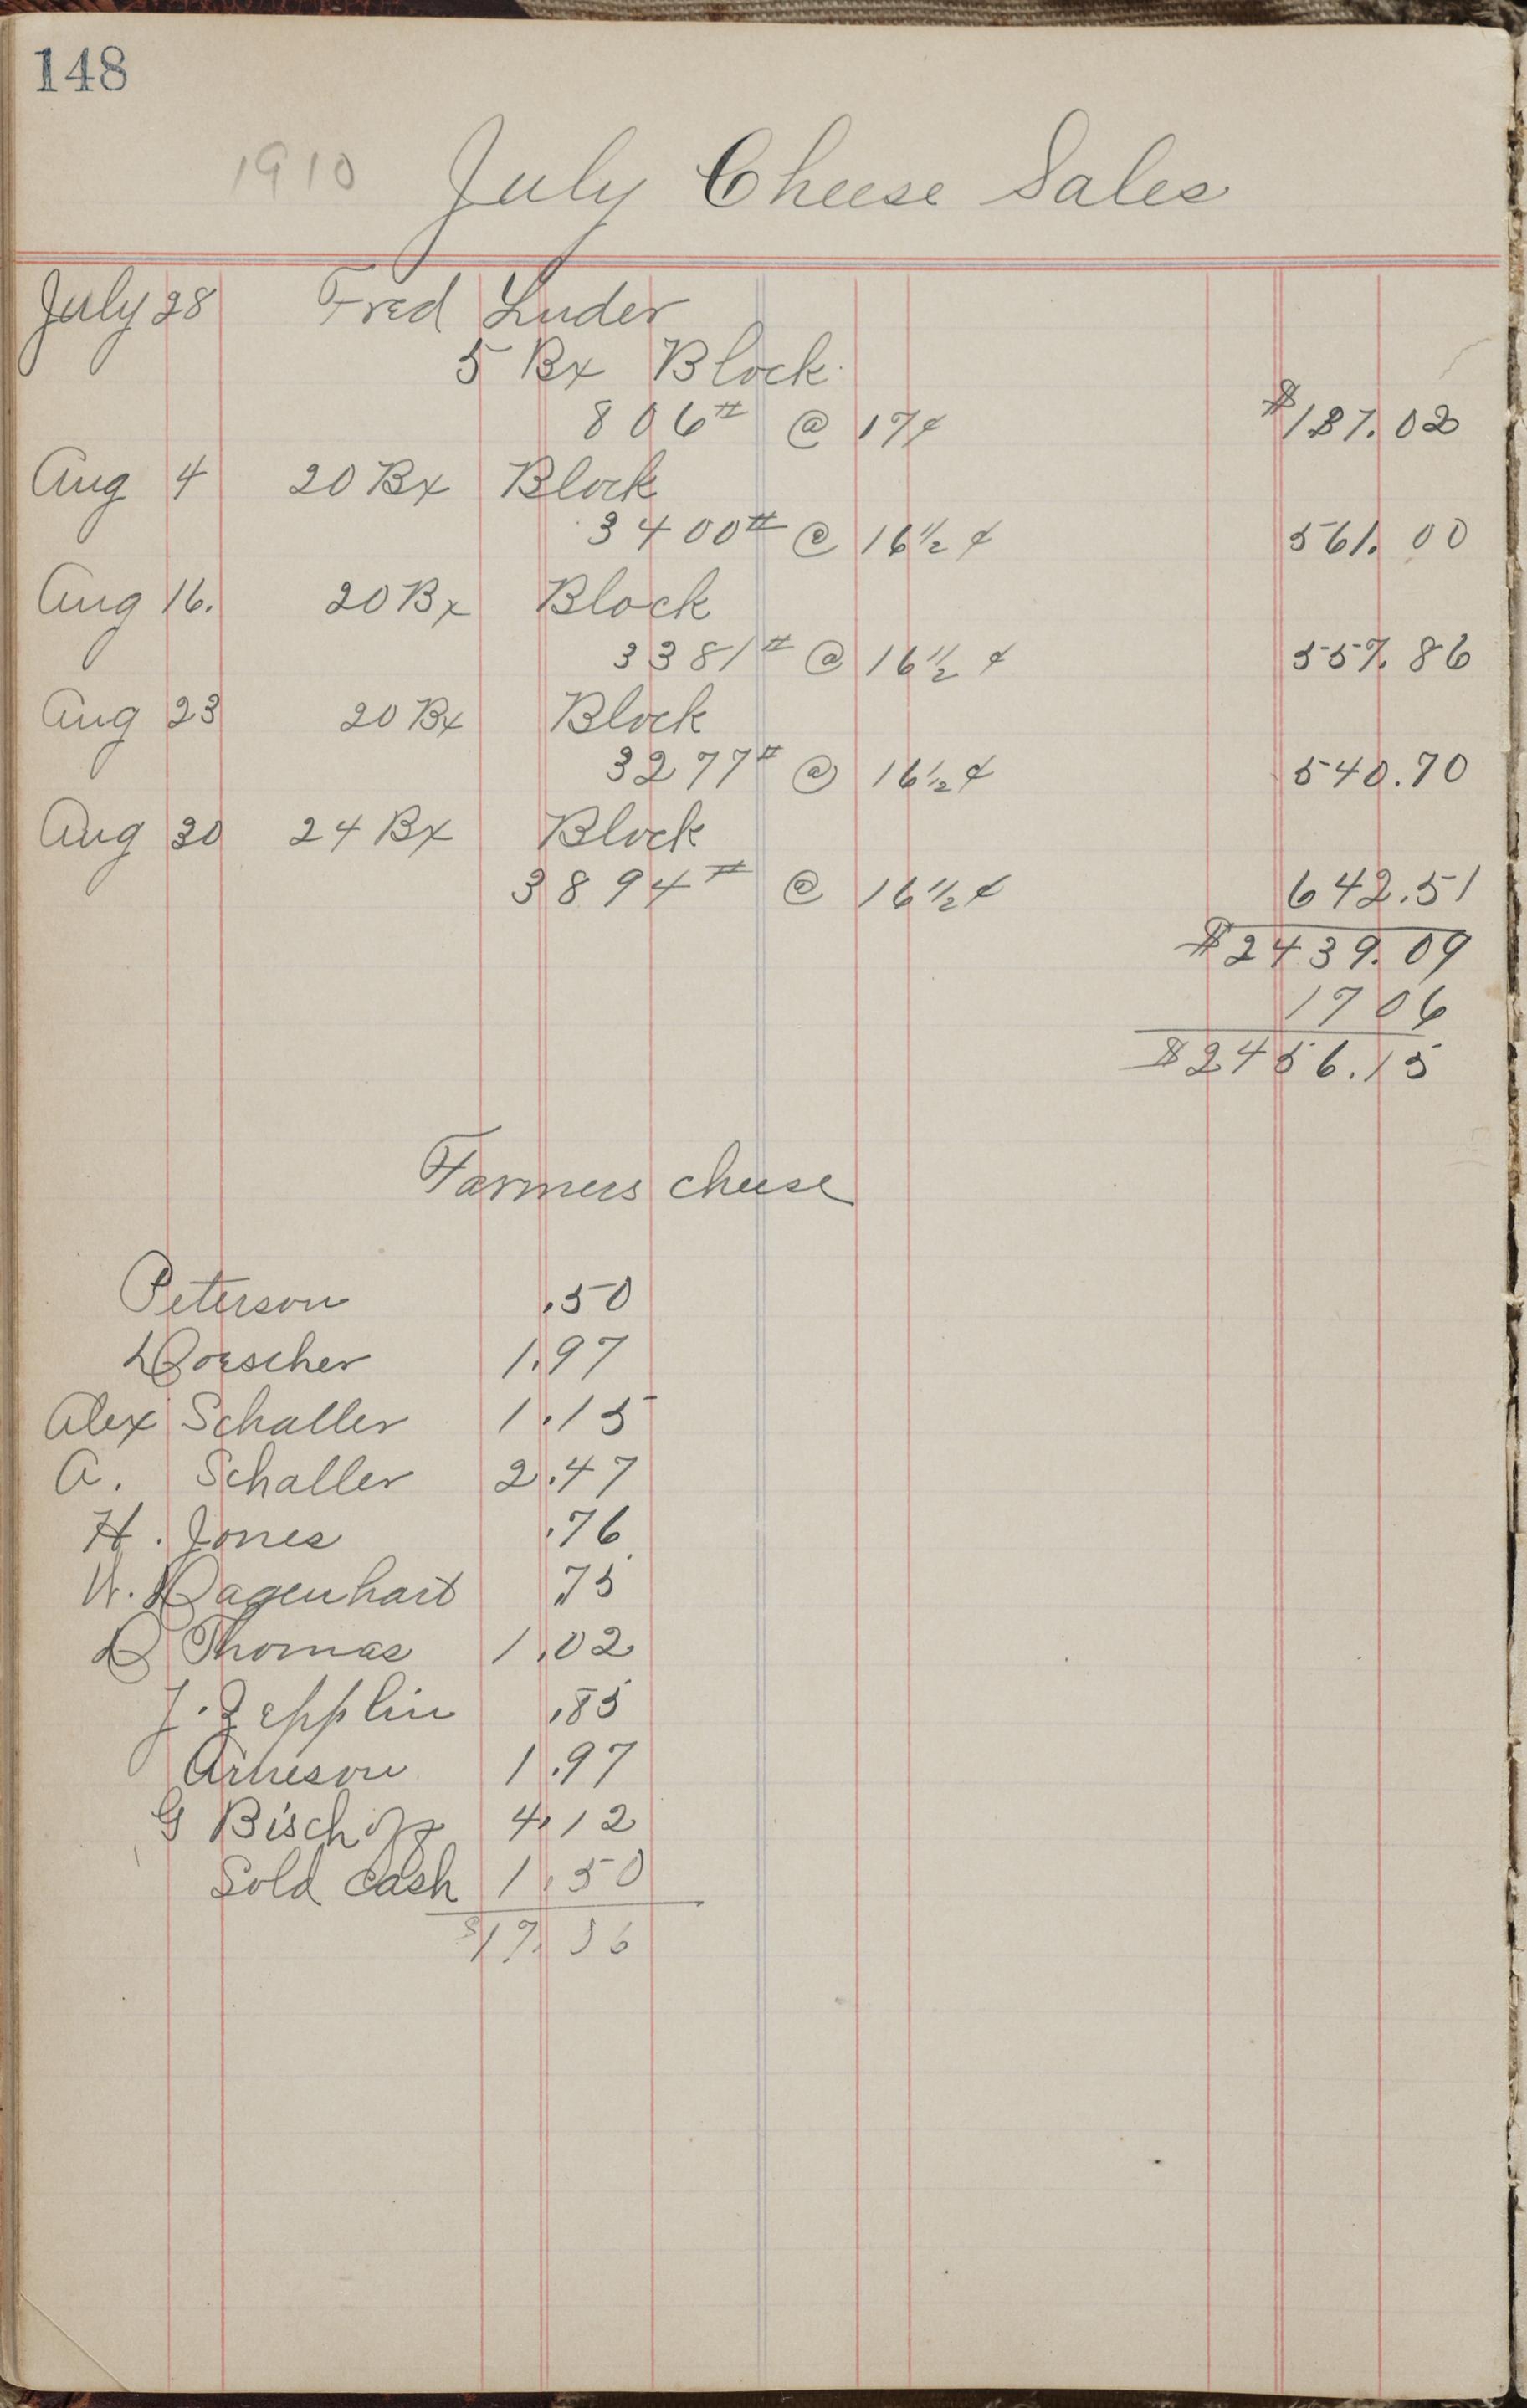 148
1910 July Cheese Sales
July 28 Fred Luder
5 Bx Block
806# @ 17¢ $137.02
Aug 4 20 Bx Block
3400# @ 16½ ¢ 561.00
Aug 16. 20 Bx Block
3381# @ 16½ ¢ 557.86
Aug 23 20 Bx Block
3277# @ 16½ ¢ 540.70
Aug 30 24 Bx Block
3894# @ 16½ ¢ 642.51
$2439.09
1706
$2456.15
Farmers cheese
Peterson .50
Doescher 1.97
Alex Schaller 1.15
A. Schaller 2.47
H. Jones .76
W. Dagenhart .75
D Thomas 1.02
J. Zepplin .85
Arneson 1.97
G Bischoff 4.12
Sold Cash 1.50
$17.06